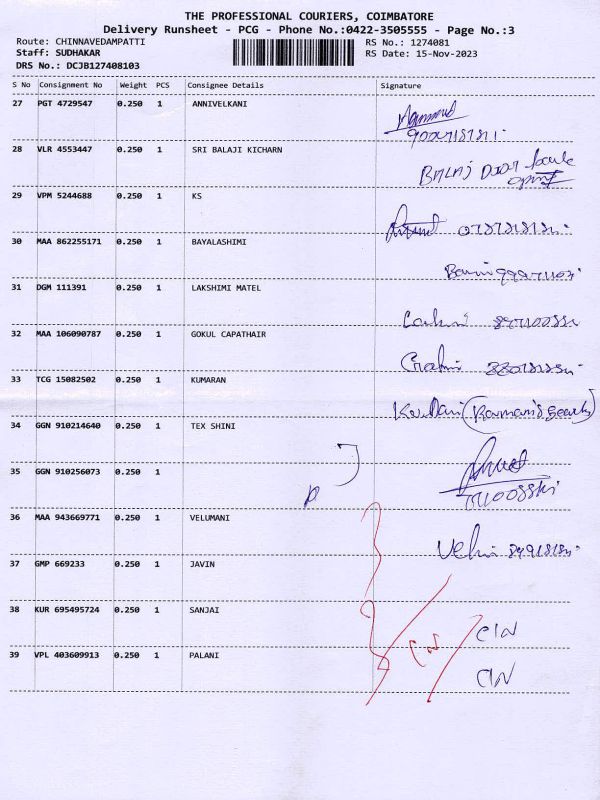 THE PROFESSIONAL COURIERS, COIMBATORE
Delivery Runsheet - PCG - Phone No.:0422-3505555 - Page No.:3
Route: CHINNAVEDAMPATTI RS No.: 1274081
Staff: SUDHAKAR RS Date: 15-Nov-2023
DRS No.: DCJB127408103
S No Consignment No Weight PCS Consignee Details Signature
27 PGT 4729547 0.250 1 ANNIVELKANI
28 VLR 4553447 0.250 1 SRI BALAJI KICHARN
29 VPM 5244688 0.250 1 KS
30 MAA 862255171 0.250 1 BAYALASHIMI
31 DGM 111391 0.250 1 LAKSHIMI MATEL
32 MAA 106090787 0.250 1 GOKUL CAPATHAIR
33 TCG 15082502 0.250 1 KUMARAN
34 GGN 910214640 0.250 1 TEX SHINI
35 GGN 910256073 0.250 1
36 MAA 943669771 0.250 1 VELUMANI
37 GMP 669233 0.250 1 JAVIN
38 KUR 695495724 0.250 1 SANJAI CIN
39 VPL 403609913 0.250 1 PALANI CIN